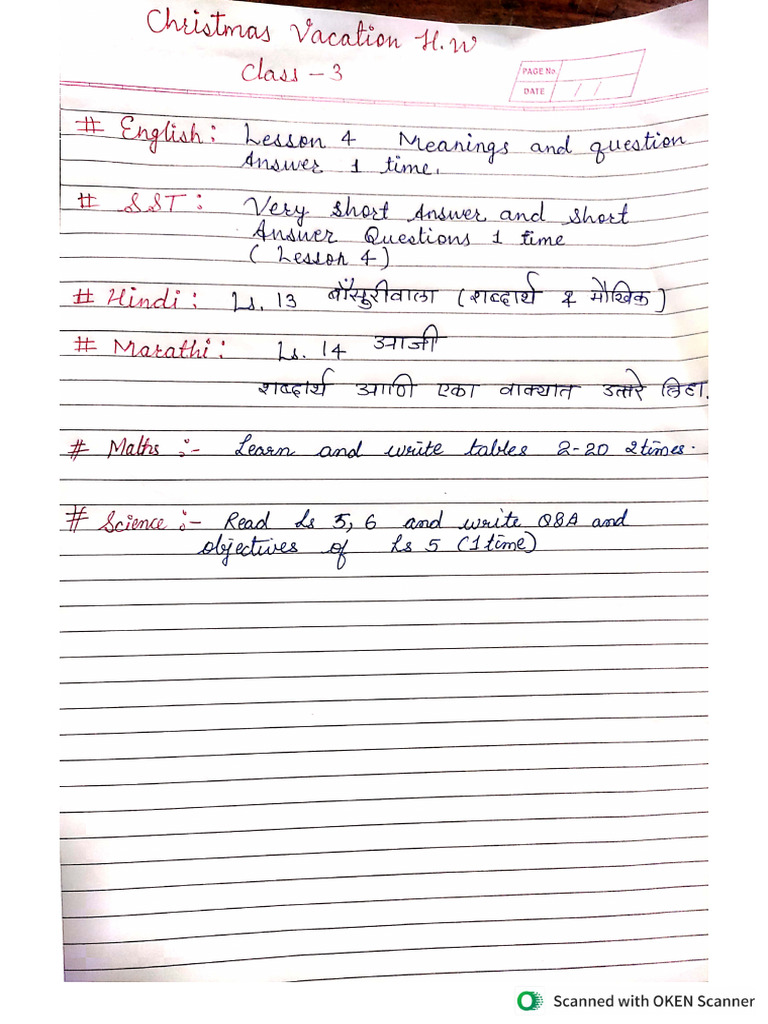 Christmas Vacation H.W
Class - 3
PAGE No.
DATE / /
# English: Lesson 4 Meanings and question
Answer 1 time.
# SST: Very short Answer and short
Answer Questions 1 time
(Lesson 4)
# Hindi: Ls. 13 बाँसुरीवाला (शब्दार्थ & मौखिक)
# Marathi: Ls. 14 आजी
शब्दार्थ आणि एका वाक्यात उत्तरे लिहा.
# Maths :- Learn and write tables 2-20 2times.
# Science :- Read Ls 5, 6 and write Q&A and
objectives of Ls 5 (1 time)
Scanned with OKEN Scanner